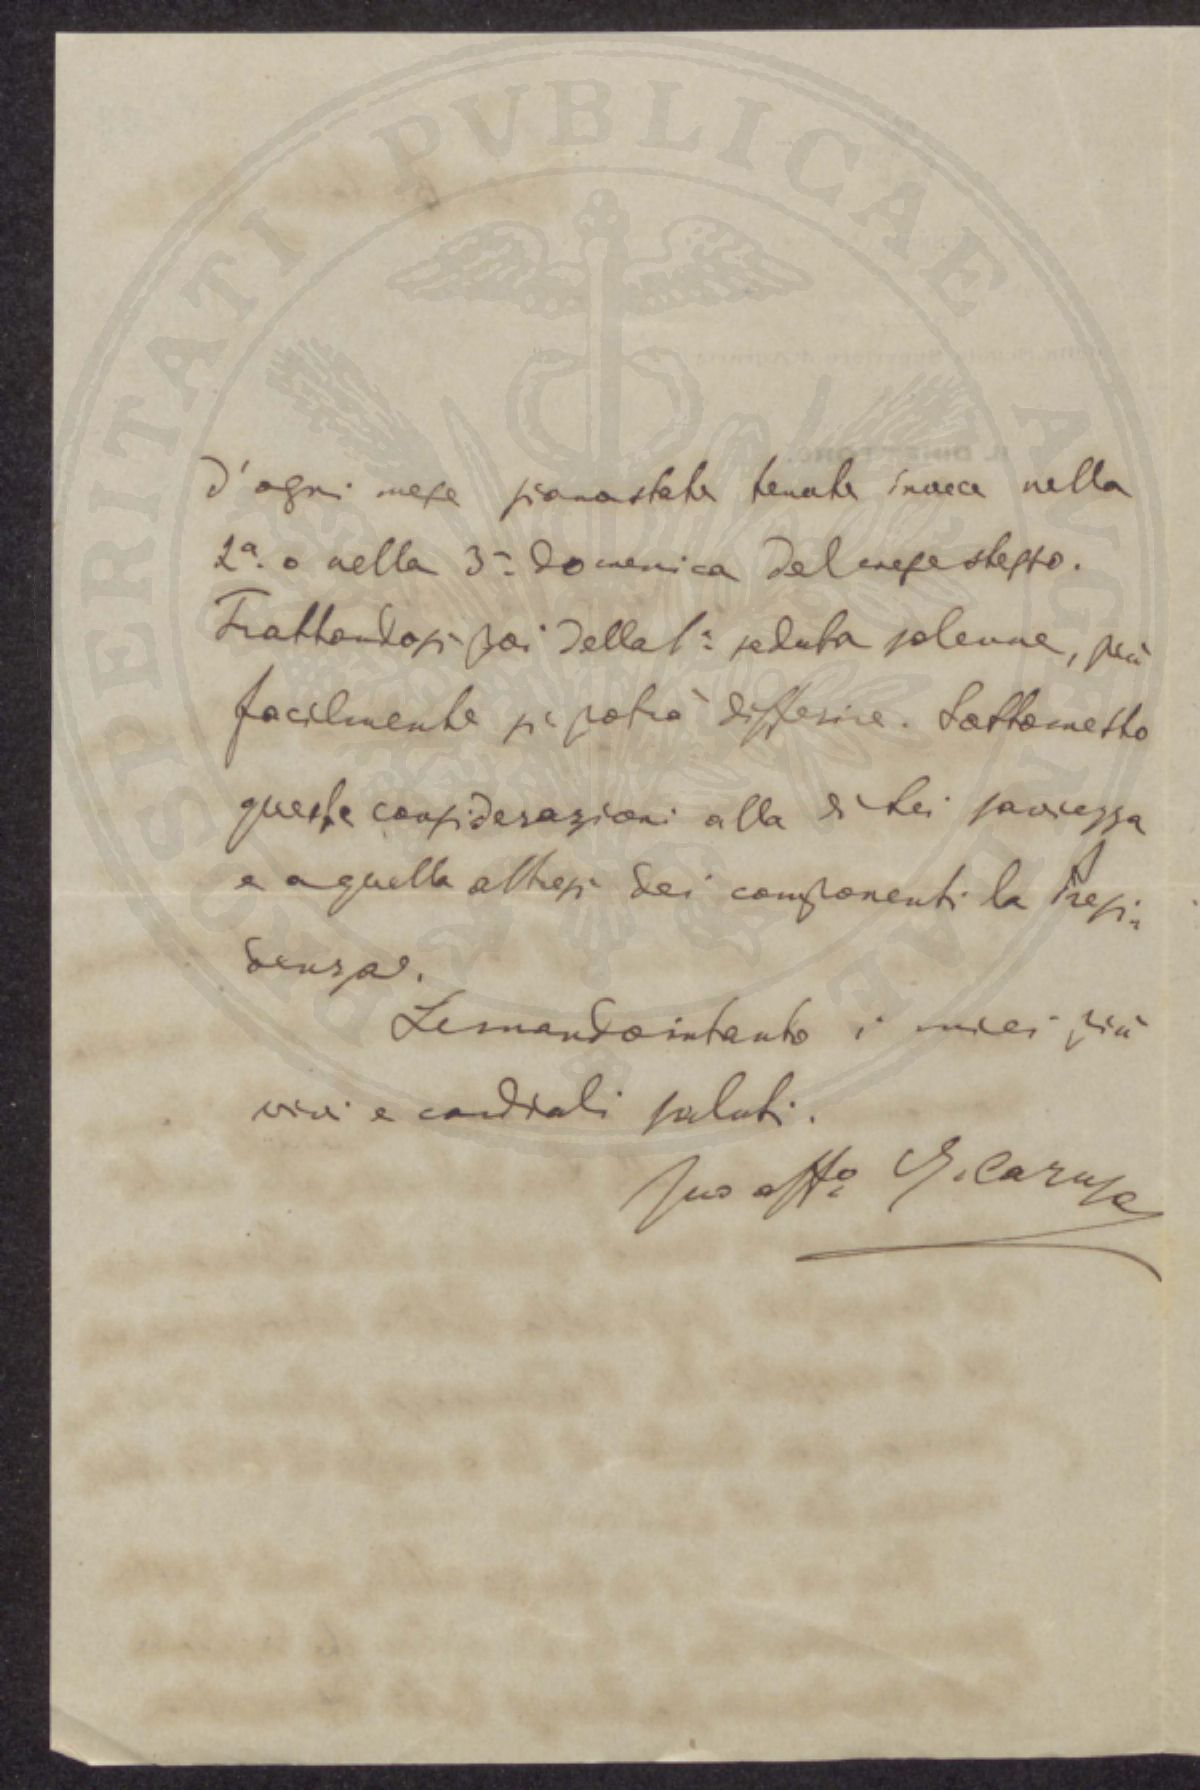 PROSPERITATI PVBLICAE AVGENDAE
IL DIRETTORE
d'ogni mese siano state tenute invece nella
2ª o nella 3ª domenica del mese stesso.
Trattandosi poi della 1ª seduta solenne, più
facilmente si potrà differire. Sottometto
queste considerazioni alla di Lei saviezza
e a quella altresì dei componenti la Presi-
denza.
Le mando intanto i miei più
vivi e cordiali saluti.
Suo affº G. Caruso